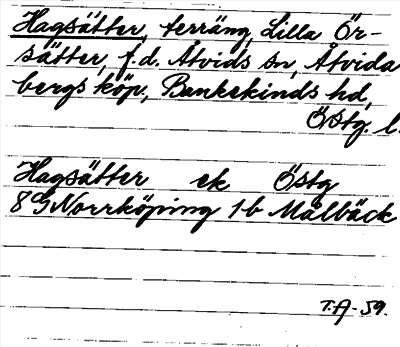 Hagsätter, terräng, Lilla Ör-
sätter, f.d. Åtvids sn, Åtvida
bergs köp., Bankekinds hd,
Östg. l.
Hagsätter ek Östg
8G Norrköping 1b Målbäck
T.A-59.